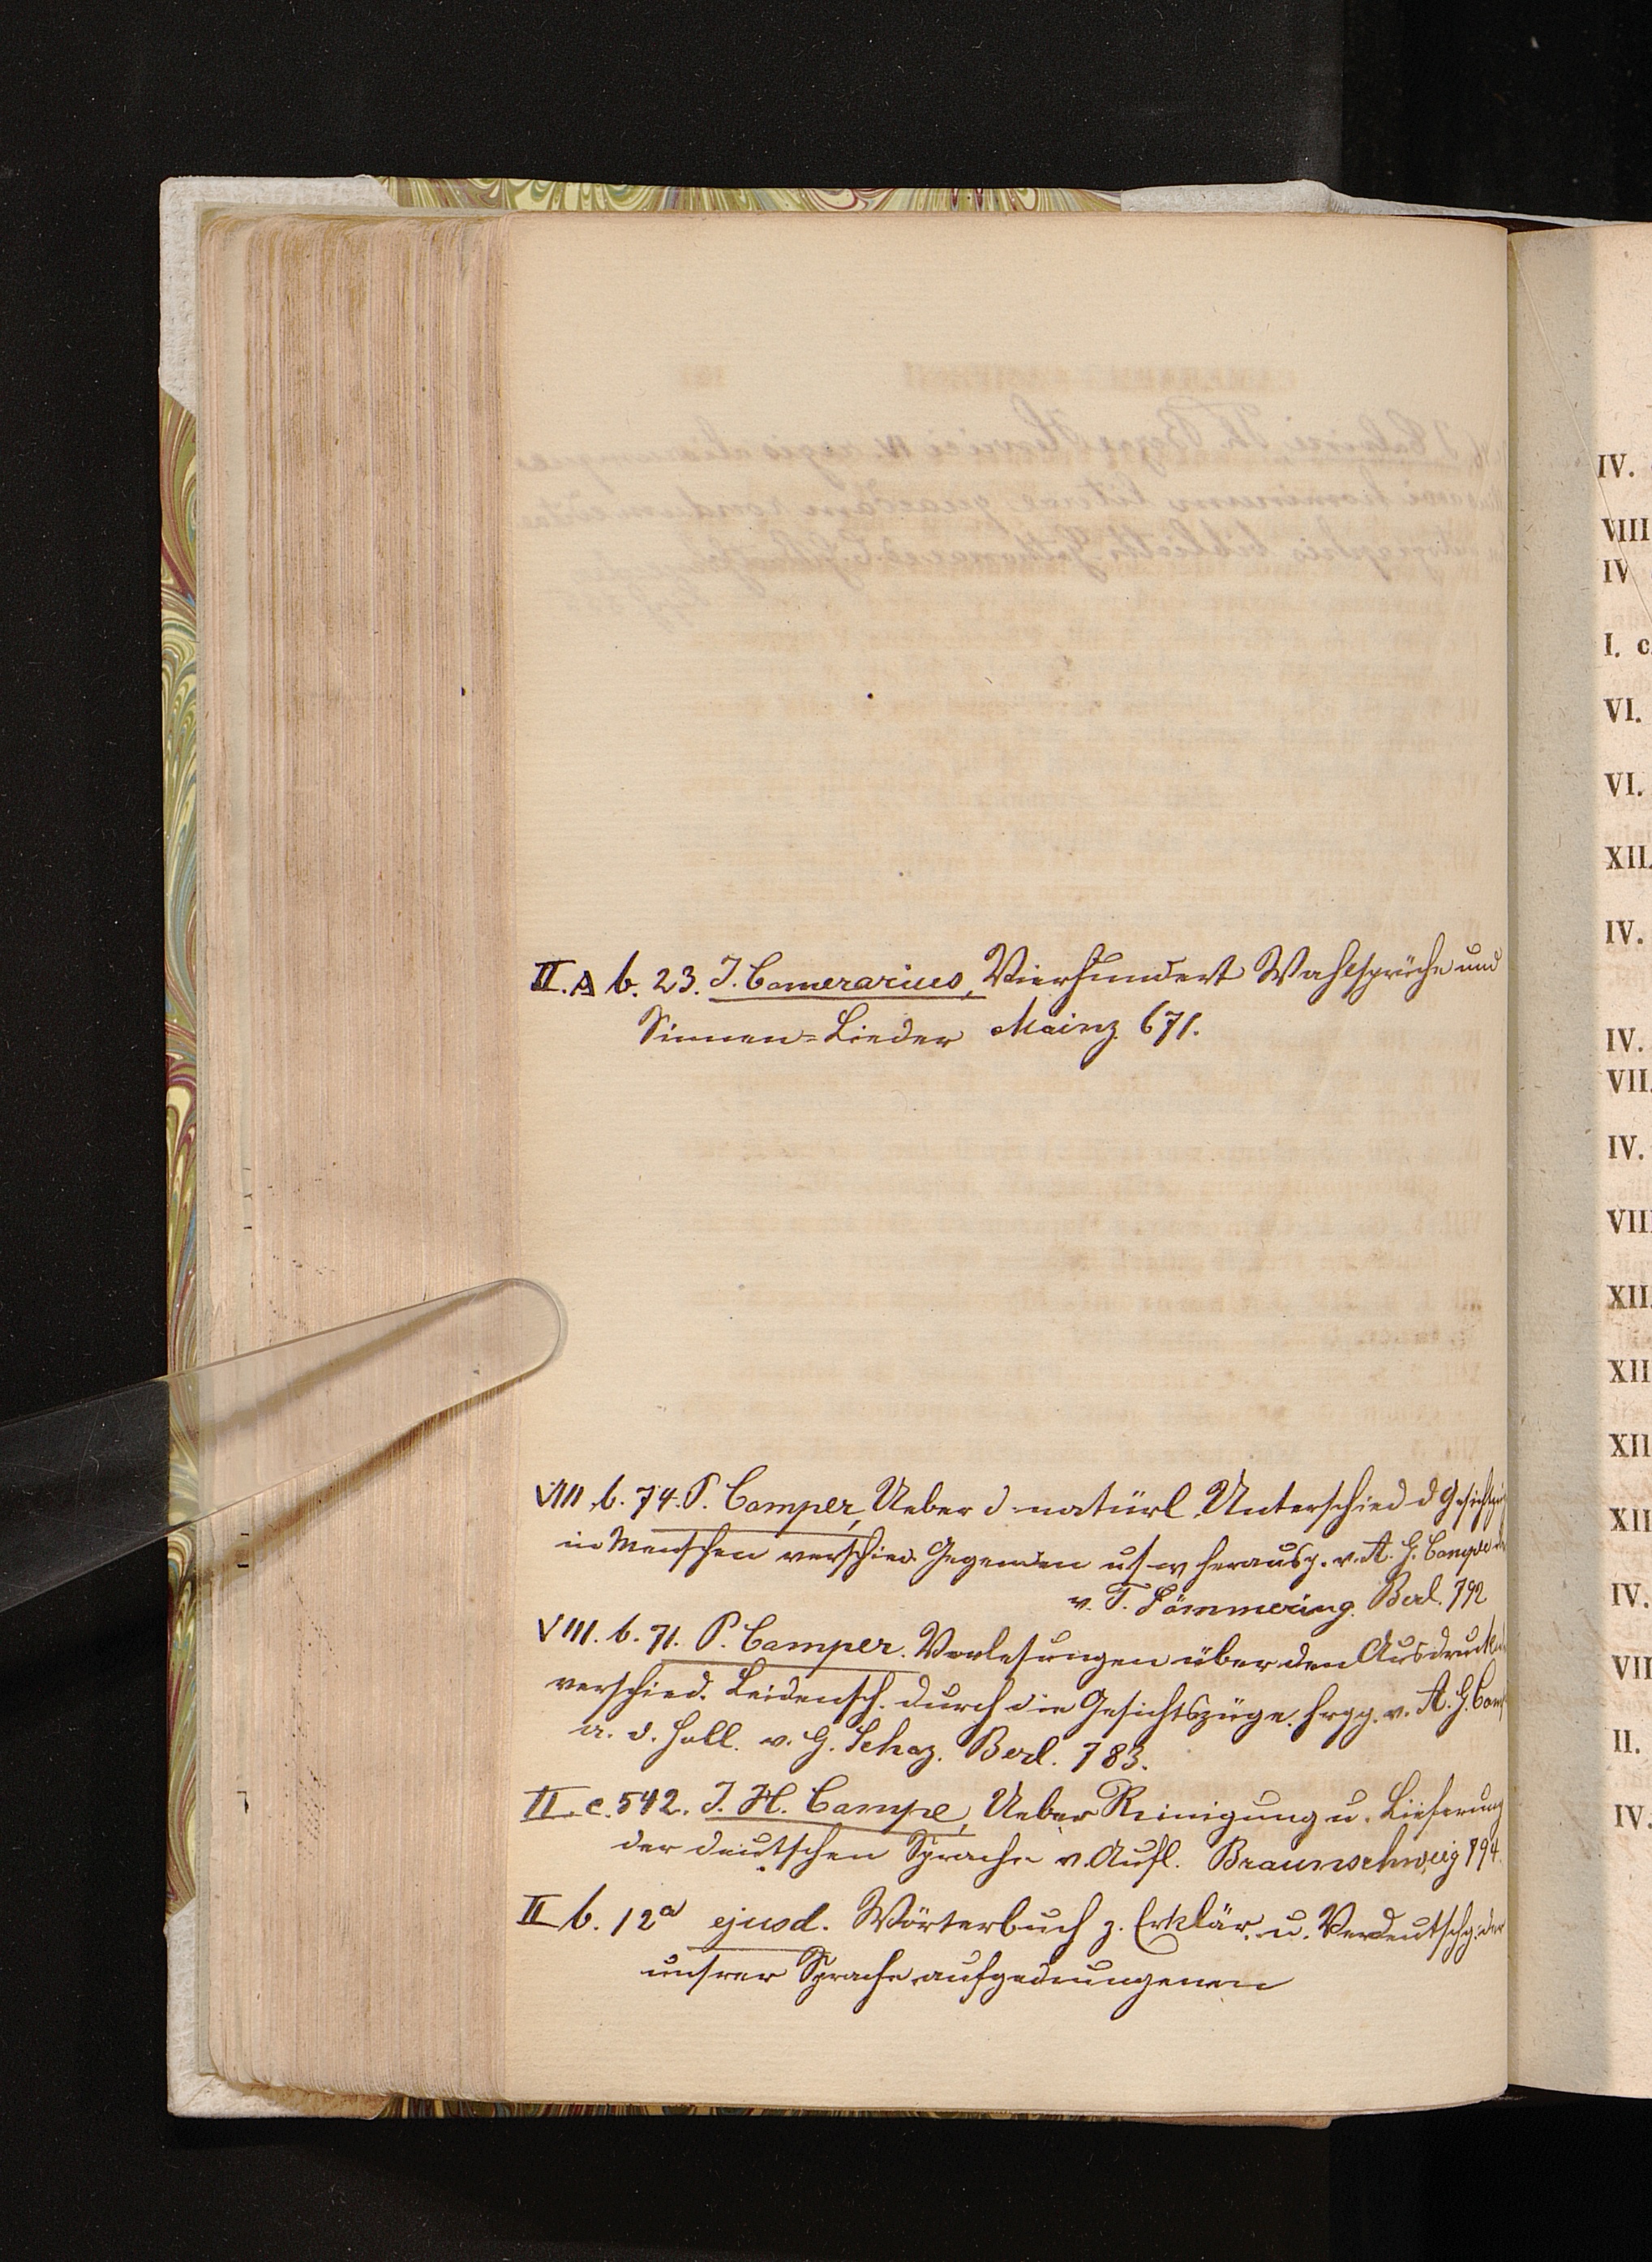 II. A b. 23. J. Camerarius, Vierhundert Wahlsprüche und
Sinnen-Lieder Mainz 671.
VIII. b. 74. P. Camper, Ueber d natürl. Unterschied d Gesichtszüg
in Menschen verschied. Gegenden usw herausg. v. A. G. Camper
v. T. Sömmering. Berl. 792
VIII. b. 71. P. Camper. Vorlesungen über den Ausdruck d
verschied. Leidensch. durch die Gesichtszüge. hrgg. v. A. G. Camp
a. d. Holl. v. G. Schaz. Berl. 783.
II. c. 542. J. H. Campe, Ueber Reinigung u.
der deutschen Sprache Aufl. Braunschweig 794.
II b. 12a ejusd. Wörterbuch z. Erklär. u. Verdeutschg. der
unsrer Sprache aufgedrungenen
IV.
VIII
IV
I. c
VI.
VI.
XII.
IV.
IV.
VII.
IV.
VIII
XII.
XII
XII
XII
IV.
VII
II.
IV.